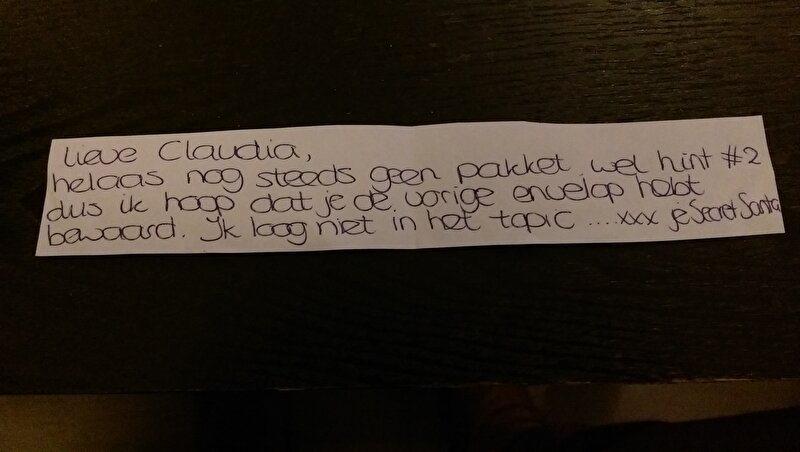 Lieve Claudia,
helaas nog steeds geen pakket. wel hint #2
dus ik hoop dat je de vorige envelop hebt
bewaard. Ik loog niet in het topic ....xxx je Secret Santa